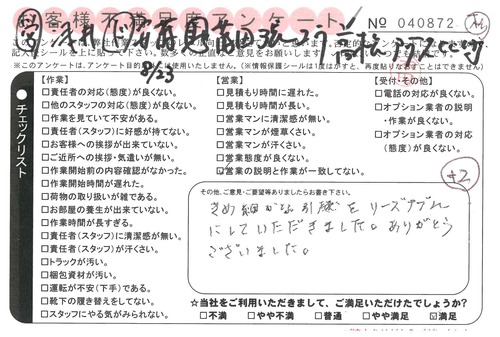 お客様不満足度アンケート
No 040872
8/23
記入シールを上に貼って下さい。
※このアンケートは、アンケート目的以外には使用いたしません。(※情報保護シールは1度はがすと、再度貼りなおすことはできません)
チェックリスト
【作業】
□責任者の対応(態度)が良くない。
□他のスタッフの対応(態度)が良くない。
□作業を見ていて不安がある。
□責任者(スタッフ)に好感が持てない。
□お客様への挨拶が出来ていない。
□ご近所への挨拶・気遣いが無い。
□作業開始前の内容確認がなかった。
□作業開始時間が遅れた。
□荷物の取り扱いが雑である。
□お部屋の養生が出来ていない。
□作業時間が長すぎる。
□責任者(スタッフ)に清潔感が無い。
□責任者(スタッフ)が汗くさい。
□トラックが汚い。
□梱包資材が汚い。
□運転が不安(下手)である。
□靴下の履き替えをしてない。
□スタッフにやる気がみられない。
【営業】
□見積もり時間に遅れた。
□見積もり時間が長い。
□営業マンに清潔感が無い。
□営業マンが煙草くさい。
□営業マンが汗くさい。
□営業態度が良くない。
□営業の説明と作業が一致してない。
【受付・その他】
□電話の対応が良くない。
□オプション業者の説明
・作業が良くない。
□オプション業者の対応
(態度)が良くない。
+2
その他、ご意見・ご要望等ありましたらお書き下さい。
きめ細かな引越をリーズナブル
にしていただきました。ありがとう
ございました。
☆当社をご利用いただきまして、ご満足いただけたでしょうか?
□不満 □やや不満 □普通 □やや満足 ☑満足